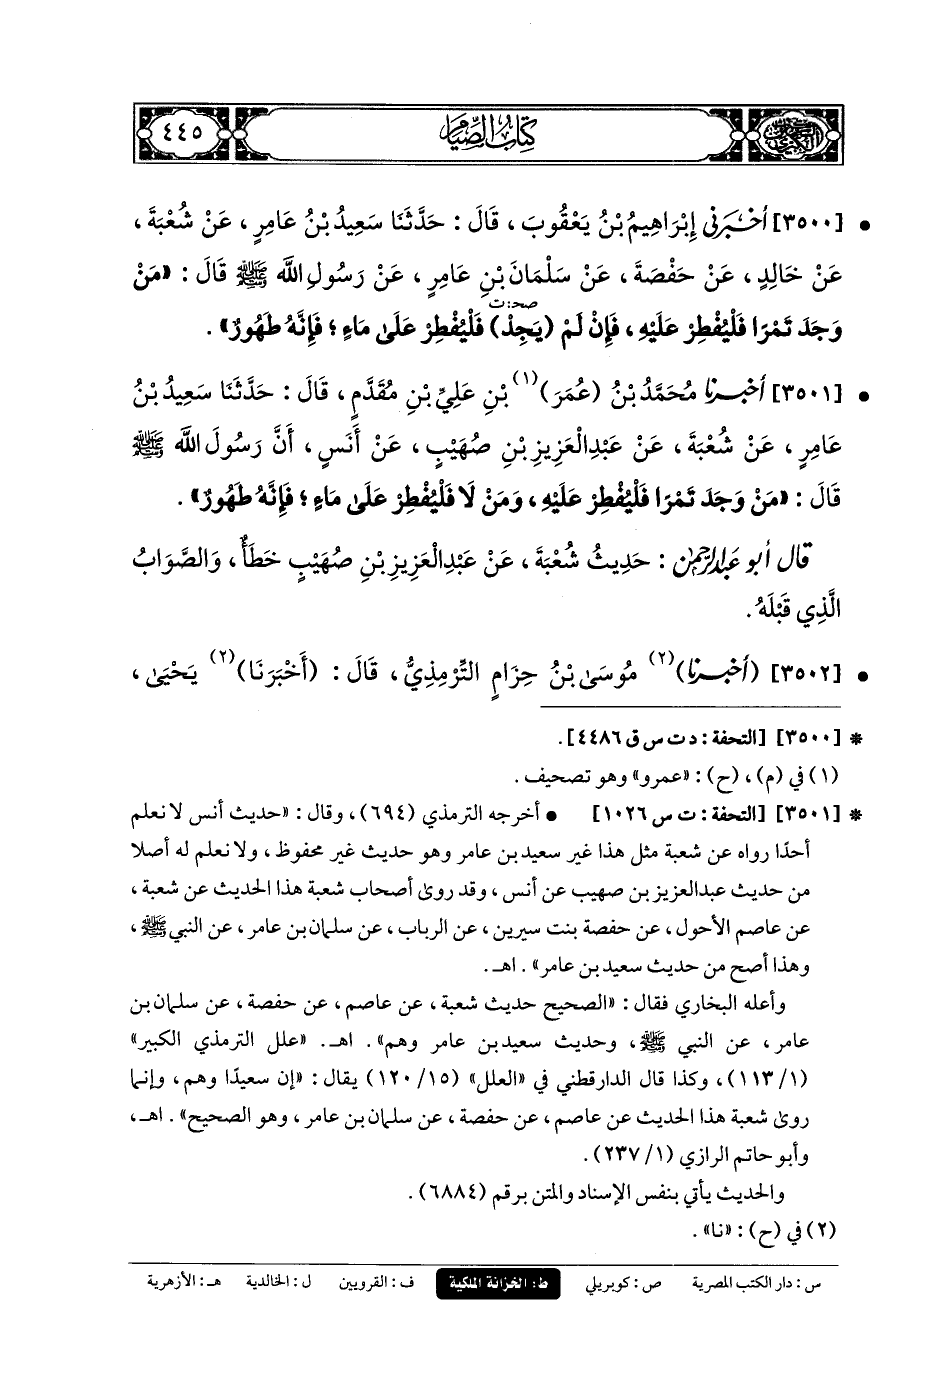 كتاب الصيام
٤٤٥
• [٣٥٠٠] أخبرني إِبْرَاهِيمُ بْنُ يَعْقُوبَ، قَالَ: حَدَّثَنَا سَعِيدُ بْنُ عَامِرٍ، عَنْ شُعْبَةَ،
عَنْ خَالِدٍ، عَنْ حَفْصَةَ، عَنْ سَلْمَانَ بْنِ عَامِرٍ، عَنْ رَسُولِ اللَّهِ ﷺ قَالَ: «مَنْ
صحـ: ت
وَجَدَ تَمْرًا فَلْيُفْطِرْ عَلَيْهِ، فَإِنْ لَمْ (يَجِدْ) فَلْيُفْطِرْ عَلَىٰ مَاءٍ؛ فَإِنَّهُ طَهُورٌ».
• [٣٥٠١] أخبرنا مُحَمَّدُ بْنُ (عُمَرَ)(١) بْنِ عَلِيِّ بْنِ مُقَدَّمٍ، قَالَ: حَدَّثَنَا سَعِيدُ بْنُ
عَامِرٍ، عَنْ شُعْبَةَ، عَنْ عَبْدِالْعَزِيزِ بْنِ صُهَيْبٍ، عَنْ أَنَسٍ، أَنَّ رَسُولَ اللَّهِ ﷺ
قَالَ: «مَنْ وَجَدَ تَمْرًا فَلْيُفْطِرْ عَلَيْهِ، وَمَنْ لَا فَلْيُفْطِرْ عَلَىٰ مَاءٍ؛ فَإِنَّهُ طَهُورٌ».
قال أبو عبدالرحمن: حَدِيثُ شُعْبَةَ، عَنْ عَبْدِالْعَزِيزِ بْنِ صُهَيْبٍ خَطَأٌ، وَالصَّوَابُ
الَّذِي قَبْلَهُ.
• [٣٥٠٢] (أخبرنا)(٢) مُوسَىٰ بْنُ حِزَامٍ التِّرْمِذِيُّ، قَالَ: (أَخْبَرَنَا)(٢) يَحْيَىٰ،
* [٣٥٠٠] [التحفة: د ت س ق ٤٤٨٦].
(١) في (م)، (ح): «عمرو» وهو تصحيف.
* [٣٥٠١] [التحفة: ت س ١٠٢٦] • أخرجه الترمذي (٦٩٤)، وقال: «حديث أنس لا نعلم
أحدًا رواه عن شعبة مثل هذا غير سعيد بن عامر وهو حديث غير محفوظ، ولا نعلم له أصلا
من حديث عبدالعزيز بن صهيب عن أنس، وقد روىٰ أصحاب شعبة هذا الحديث عن شعبة،
عن عاصم الأحول، عن حفصة بنت سيرين، عن الرباب، عن سلمان بن عامر، عن النبي ﷺ،
وهذا أصح من حديث سعيد بن عامر». اهـ.
وأعله البخاري فقال: «الصحيح حديث شعبة، عن عاصم، عن حفصة، عن سلمان بن
عامر، عن النبي ﷺ، وحديث سعيد بن عامر وهم». اهـ. «علل الترمذي الكبير»
(١/ ١١٣)، وكذا قال الدارقطني في «العلل» (١٥/ ١٢٠) يقال: «إن سعيدًا وهم، وإنما
روىٰ شعبة هذا الحديث عن عاصم، عن حفصة، عن سلمان بن عامر، وهو الصحيح». اهـ،
وأبو حاتم الرازي (١/ ٢٣٧).
والحديث يأتي بنفس الإسناد والمتن برقم (٦٨٨٤).
(٢) في (ح): «نا».
س: دار الكتب المصرية ص: كوبريلي ط: الخزانة الملكية ف: القرويين ل: الخالدية هـ: الأزهرية